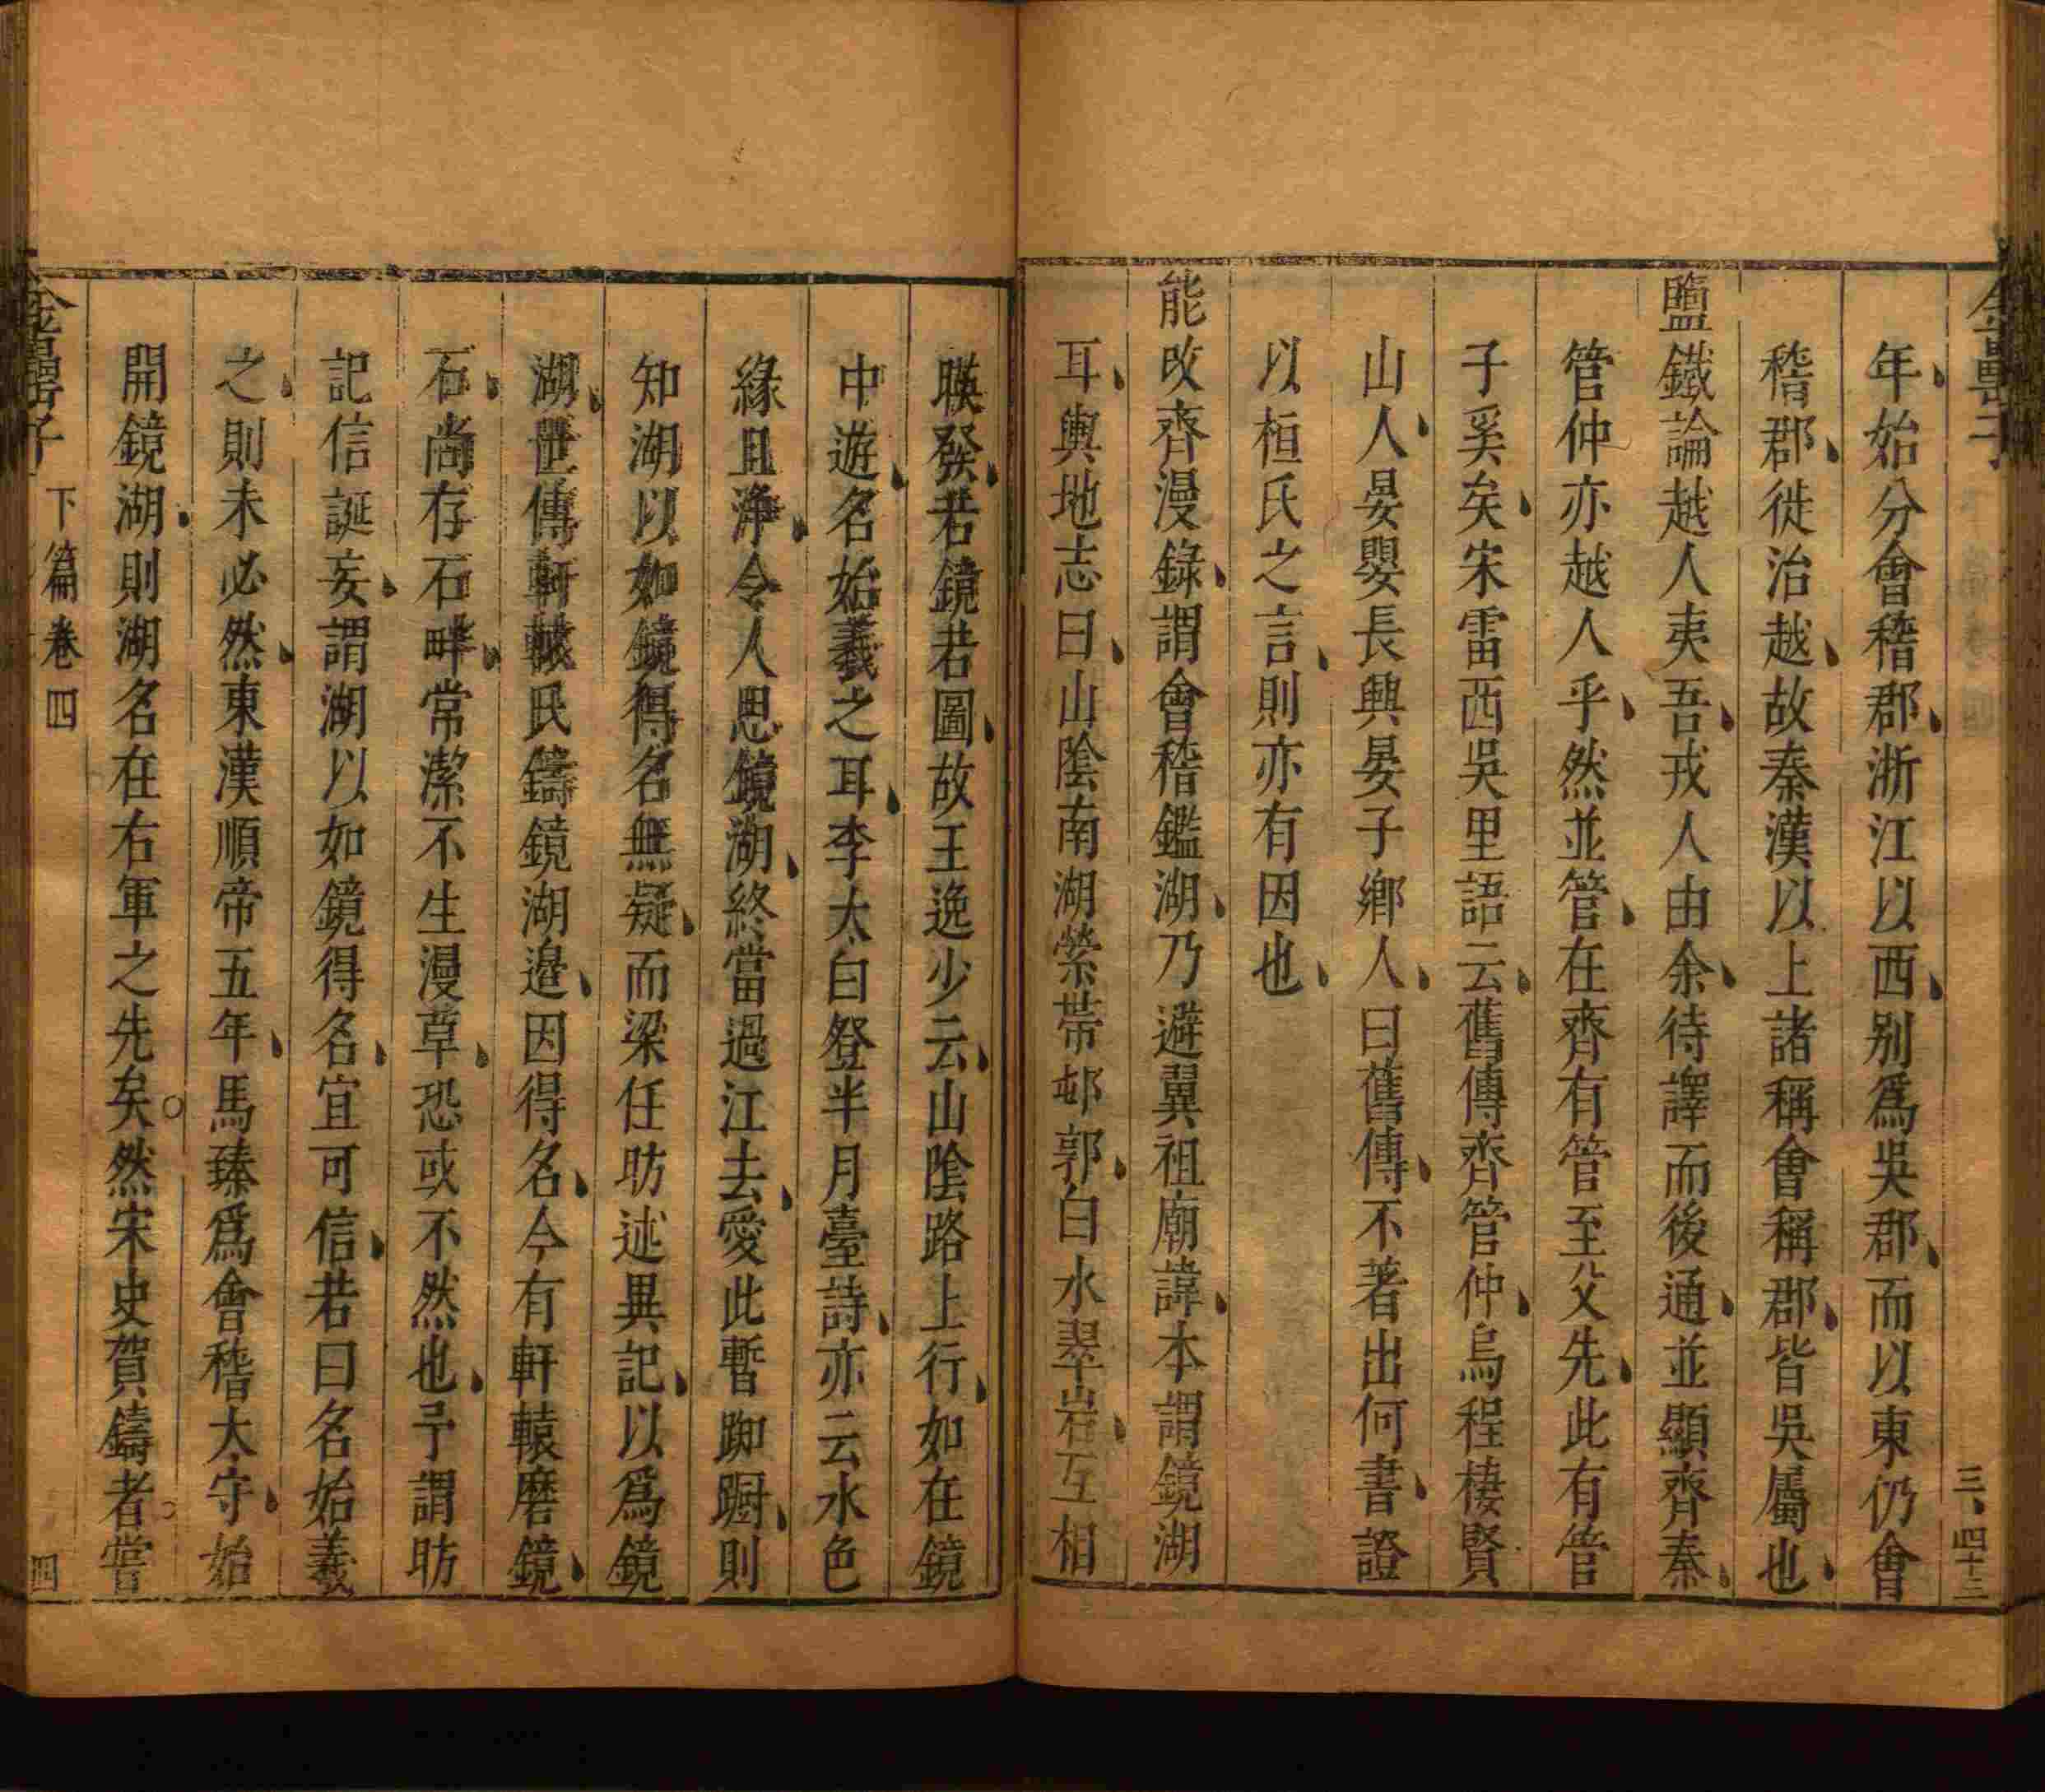 年始分會稽郡浙江以西别爲吳郡而以東仍會
稽郡徙治越故秦漢以上諸稱會稱郡皆吳屬也
鹽鐵論越人夷吾戎人由余待譯而後通並顯齊秦
管仲亦越人乎然並管在齊有管至父先此有管
子奚矣宋雷西吳里語云舊傳齊管仲烏程棲賢
山人晏嬰長興晏子鄉人曰舊傳不著出何書證
以桓氏之言則亦有因也
能改齊漫錄謂會稽鑑湖乃避翼祖廟諱本謂鏡湖
耳輿地志曰山陰南湖縈帶郊郭白水翠岩互相
暎發若鏡若圖故王逸少云山陰路上行如在鏡
中遊名始羲之耳李太白登半月臺詩亦云水色
緣且淨令人思鏡湖終當過江去愛此暫踟躕則
知湖以如鏡得名無疑而梁任昉述異記以爲鏡
湖世傳軒轅氏鑄鏡湖邉因得名今有軒轅磨鏡
石尚存石畔常潔不生漫草恐或不然也予謂昉
記信誕妄謂湖以如鏡得名宜可信若曰名始羲
之則未必然東漢順帝五年馬臻爲會稽太守始
開鏡湖則湖名在右軍之先矣然宋史賀鑄者嘗
下篇卷四